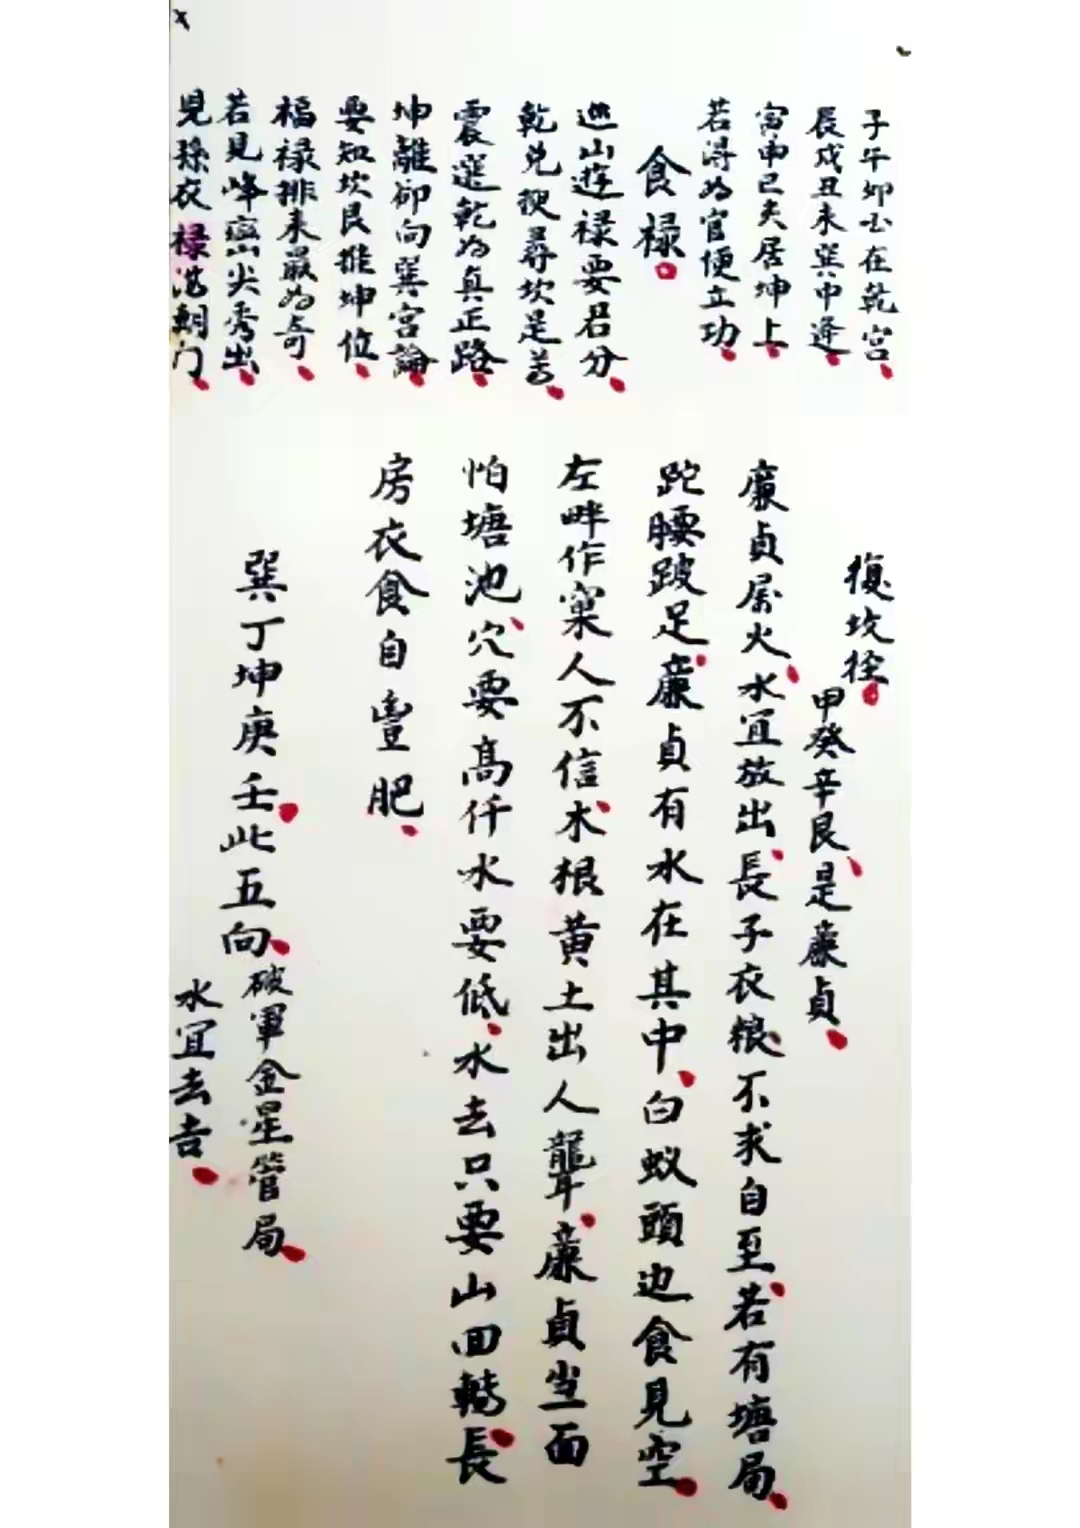 子午卯酉在乾宫
辰戌丑未巽中逢
寅申巳亥居坤上
若得为官便立功
食禄
巡山遊禄要君分
乾兑搜尋坎是苦
震巽乾为真正路
坤離卻向巽宫論
要知坎艮推坤位
福禄排来最为奇
若見峰巒尖秀出
兒孫衣禄满朝门
復坟径
甲癸辛艮是廉貞
廉貞属火水宜放出長子衣粮不求自至若有塘局
跎腰跛足廉貞有水在其中白蚁頭边食見空
左畔作窠人不信木根黄土出人聾廉貞当面
怕塘池穴要高仟水要低水去只要山回轉長
房衣食自豐肥
巽丁坤庚壬此五向破軍金星管局
水宜去吉